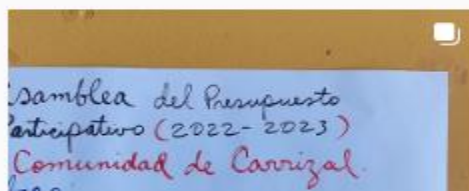 samblea del Presupuesto
articipativo (2022-2023)
Comunidad de Carrizal.